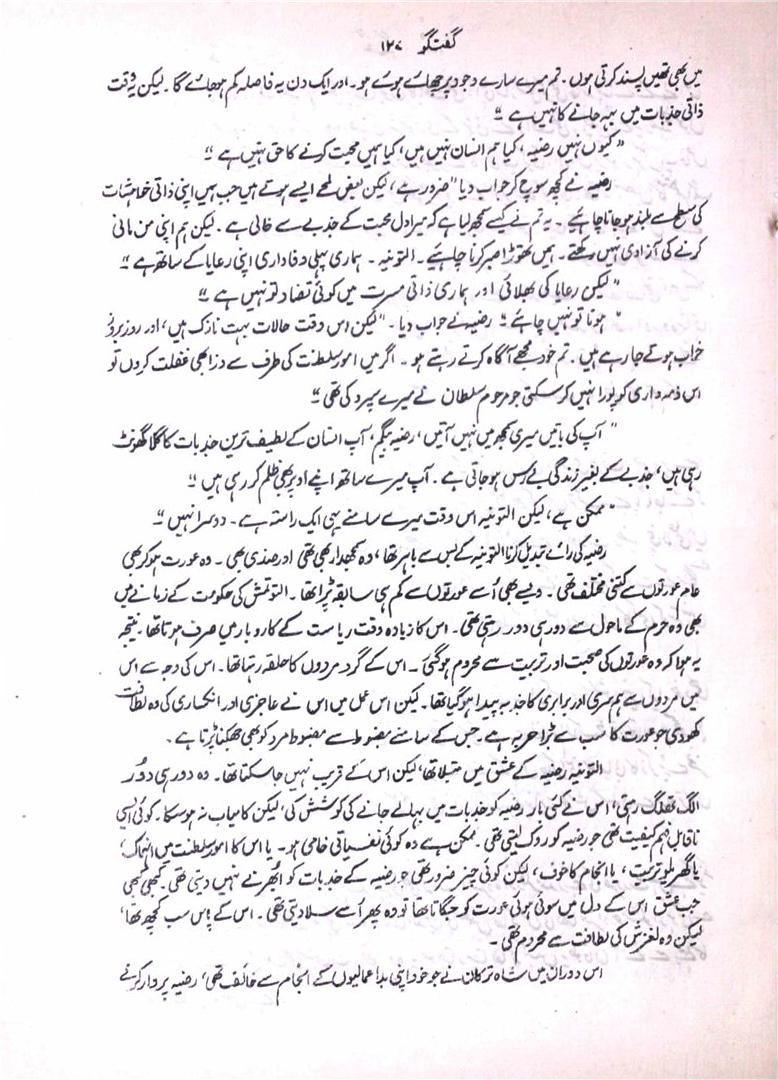 گفتگو ۱۲۷
میں بھی تمھیں پسند کرتی ہوں۔ تم میرے سارے وجود پر چھائے ہوئے ہو۔ اور ایک دن یہ فاصلہ کم ہو جائے گا۔ لیکن یہ وقت
ذاتی جذبات میں بہہ جانے کا نہیں ہے "
" کیوں نہیں رضیہ، کیا ہم انسان نہیں ہیں، کیا ہمیں محبت کرنے کا حق نہیں ہے "
رضیہ نے کچھ سوچ کر جواب دیا " ضرور ہے، لیکن بعض لمحے ایسے ہوتے ہیں جب ہمیں اپنی ذاتی خواہشات
کی سطح سے بلند ہو جانا چاہئیے۔ یہ تم نے کیسے سمجھ لیا ہے کہ میرا دل محبت کے جذبے سے خالی ہے۔ لیکن ہم اپنی من مانی
کرنے کی آزادی نہیں رکھتے۔ ہمیں تھوڑا صبر کرنا چاہئیے۔ التونیہ۔ ہماری پہلی وفاداری اپنی رعایا کے ساتھ ہے "
" لیکن رعایا کی بھلائی اور ہماری ذاتی مسرت میں کوئی تضاد تو نہیں ہے "
" ہونا تو نہیں چاہئے " رضیہ نے جواب دیا۔ " لیکن اس وقت حالات بہت نازک ہیں، اور روز بروز
خراب ہوتے جا رہے ہیں۔ تم خود مجھے آگاہ کرتے رہتے ہو۔ اگر میں امور سلطنت کی طرف سے ذرا بھی غفلت کروں تو
اس ذمہ داری کو پورا نہیں کر سکتی جو مرحوم سلطان نے میرے سپرد کی تھی "
" آپ کی باتیں میری سمجھ میں نہیں آتیں، رضیہ بیگم، آپ انسان کے لطیف ترین جذبات کا گلا گھونٹ
رہی ہیں، جذبے کے بغیر زندگی بے رس ہو جاتی ہے۔ آپ میرے ساتھ اپنے اوپر بھی ظلم کر رہی ہیں "
" ممکن ہے، لیکن التونیہ اس وقت میرے سامنے یہی ایک راستہ ہے۔ دوسرا نہیں "
رضیہ کی رائے تبدیل کرنا التونیہ کے بس سے باہر تھا، وہ سمجھدار بھی تھی اور ضدی بھی۔ وہ عورت ہو کر بھی
عام عورتوں سے کتنی مختلف تھی۔ ویسے بھی اُسے عورتوں سے کم ہی سابقہ پڑا تھا۔ التوتمش کی حکومت کے زمانے میں
بھی وہ حرم کے ماحول سے دور ہی دور رہتی تھی۔ اس کا زیادہ وقت ریاست کے کاروبار میں صرف ہوتا تھا۔ نتیجہ
یہ ہوا کہ وہ عورتوں کی صحبت اور تربیت سے محروم ہو گئی۔ اس کے گرد مردوں کا حلقہ رہتا تھا۔ اس کی وجہ سے اس
میں مردوں سے ہم سری اور برابری کا جذبہ پیدا ہو گیا تھا۔ لیکن اس عمل میں اس نے عاجزی اور انکساری کی وہ لطافت
کھو دی جو عورت کا سب سے بڑا حربہ ہے۔ جس کے سامنے مضبوط سے مضبوط مرد کو بھی جھکنا پڑتا ہے۔
التونیہ رضیہ کے عشق میں مبتلا تھا، لیکن اس کے قریب نہیں جا سکتا تھا۔ وہ دور ہی دور
الگ تھلگ رہتی، اس نے کئی بار رضیہ کو جذبات میں بہا لے جانے کی کوشش کی، لیکن کامیاب نہ ہو سکا۔ کوئی ایسی
ناقابلِ فہم کیفیت تھی جو رضیہ کو روک لیتی تھی۔ ممکن ہے وہ کوئی نفسیاتی خامی ہو۔ یا اس کا امور سلطنت میں انہماک،
یا گھریلو تربیت، یا انجام کا خوف، لیکن کوئی چیز ضرور تھی جو رضیہ کے جذبات کو اُبھرنے نہیں دیتی تھی۔ کبھی کبھی
جب عشق اس کے دل میں سوئی ہوئی عورت کو جگاتا تھا تو وہ پھر اُسے سلا دیتی تھی۔ اس کے پاس سب کچھ تھا،
لیکن وہ لغزش کی لطافت سے محروم تھی۔
اس دوران میں شاہ ترکان نے جو خود اپنی بداعمالیوں کے انجام سے خائف تھی، رضیہ پر وار کرنے